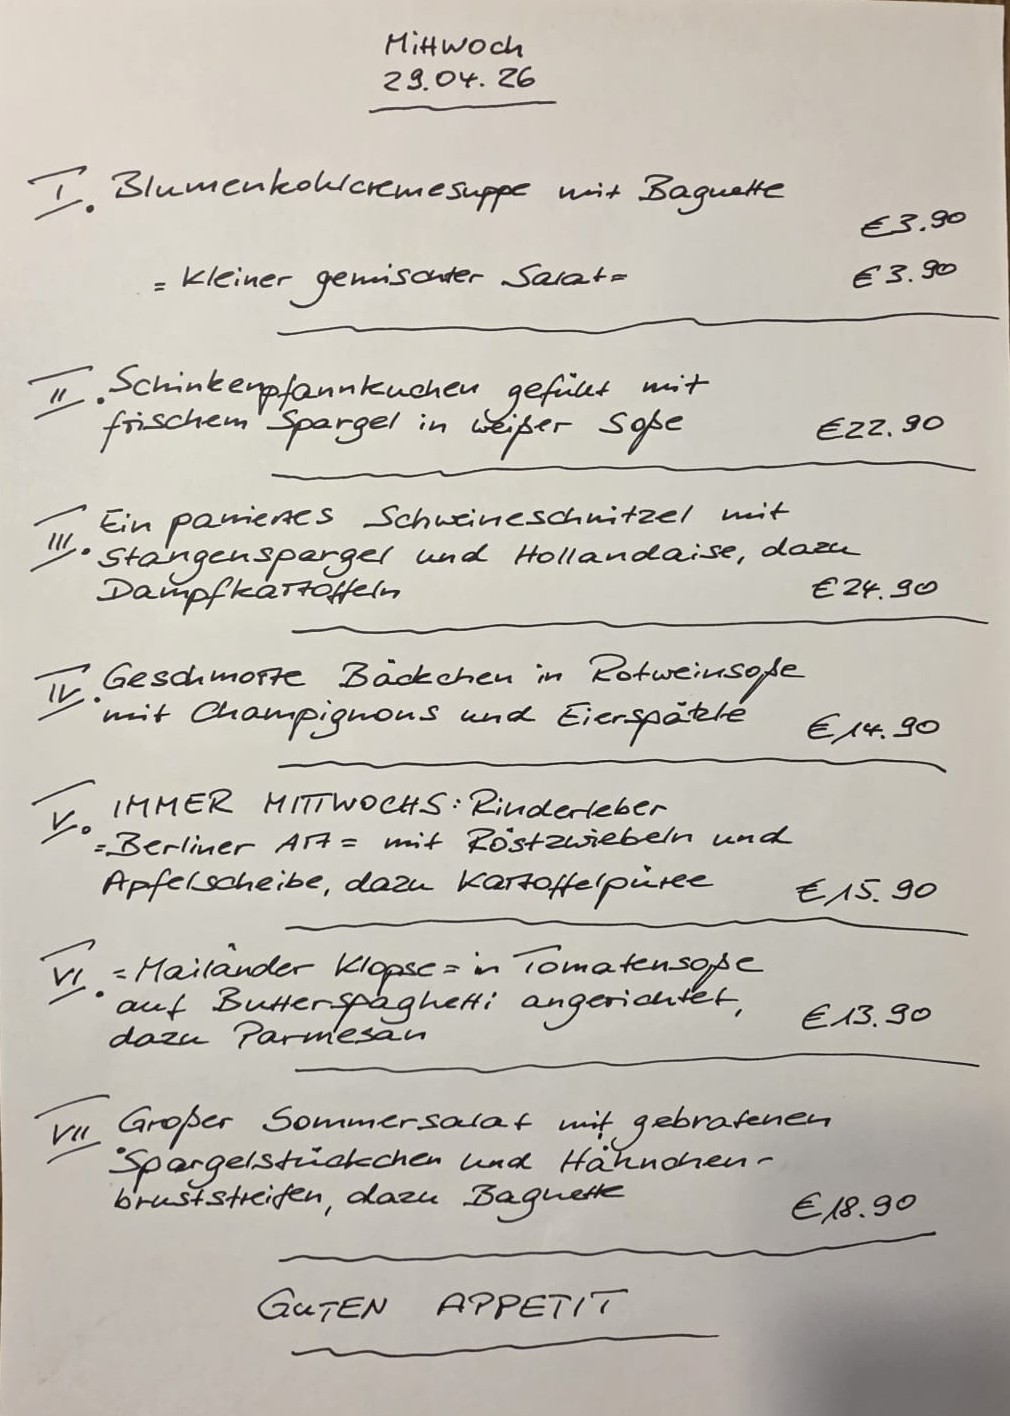 Mittwoch
29.04.26
I. Blumenkohlcremesuppe mit Baguette
€3.90
= Kleiner gemischter Salat = €3.90
II. Schinkenpfannkuchen gefüllt mit
frischem Spargel in weißer Soße €22.90
III. Ein paniertes Schweineschnitzel mit
Stangenspargel und Hollandaise, dazu
Dampfkartoffeln €24.90
IV. Geschmorte Bäckchen in Rotweinsoße
mit Champignons und Eierspätzle €14.90
V. IMMER MITTWOCHS: Rinderleber
=Berliner Art= mit Röstzwiebeln und
Apfelscheibe, dazu Kartoffelpüree €15.90
VI. =Mailänder Klopse= in Tomatensoße
auf Butterspaghetti angerichtet,
dazu Parmesan €13.90
VII. Großer Sommersalat mit gebratenen
Spargelstückchen und Hähnchen-
bruststreifen, dazu Baguette €18.90
GUTEN APPETIT